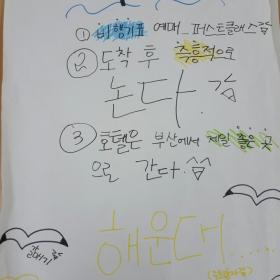 ① 비행기표 예매_퍼스트클래스급
② 도착 후 즉흥적으로
논다.
③ 호텔은 부산에서 제일 좋은 곳
으로 간다.
갈매기
해운대.....